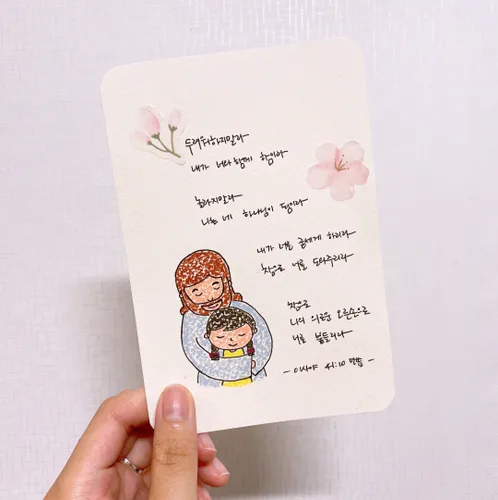 두려워하지말라
내가 너와함께 함이라
놀라지말라
나는 네 하나님이 됨이라
내가 너를 굳세게 하리라
참으로 너를 도와주리라
참으로
나의 의로운 오른손으로
너를 붙들리라
- 이사야 41:10 말씀 -